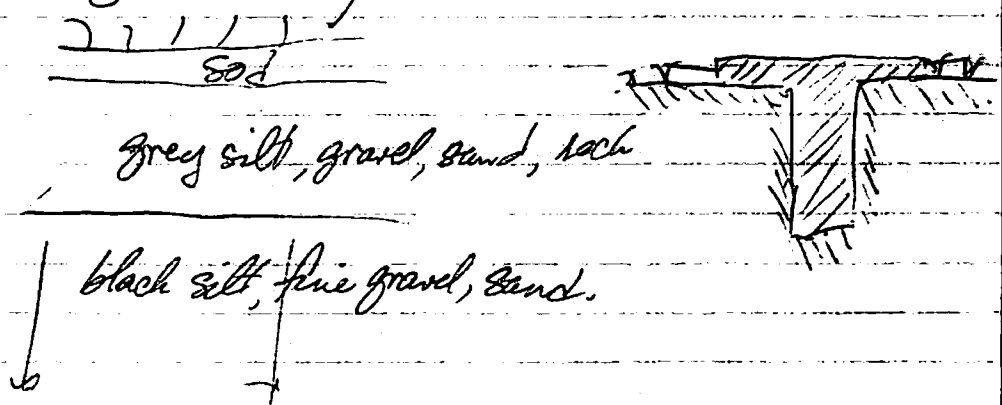 sod
grey silt, gravel, sand, rock
black silt, fine gravel, sand.